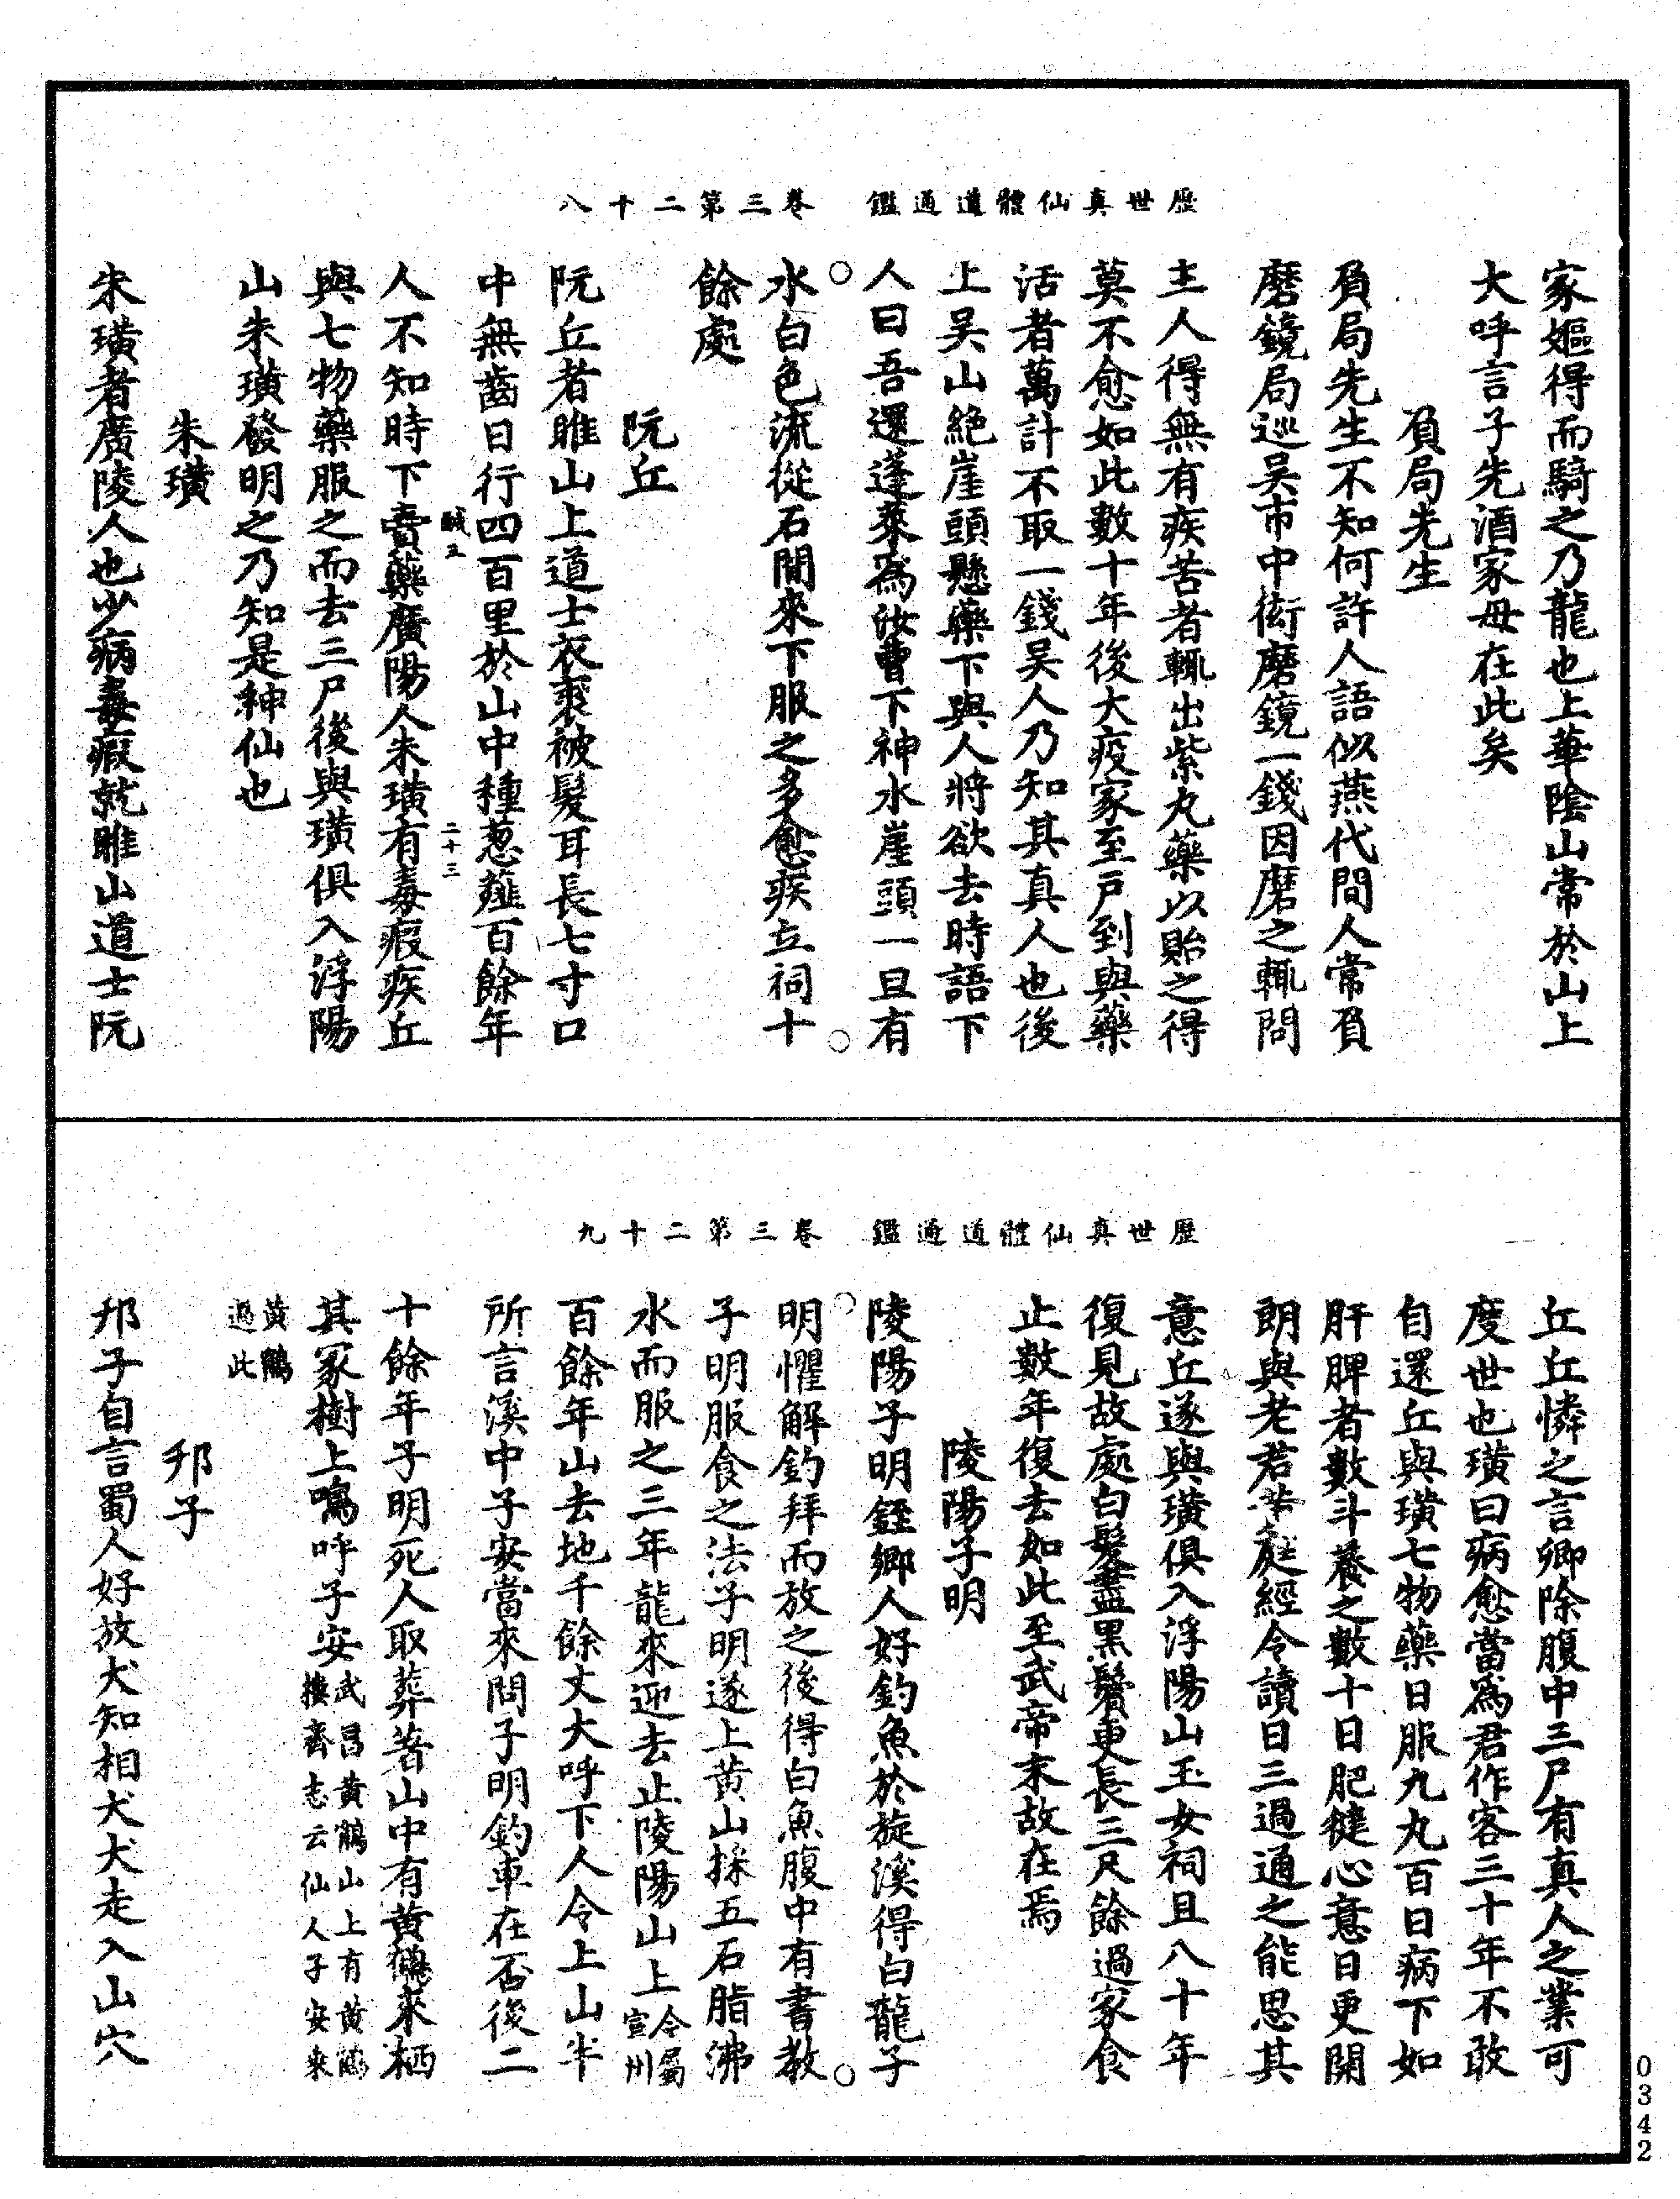 歷世真仙體道通鑑　卷三第二十八
家嫗得而騎之乃龍也上華陰山常於山上
大呼言子先酒家母在此矣
負局先生
負局先生不知何許人語似燕代間人常負
磨鏡局巡吳市中衒磨鏡一錢因磨之輒問
主人得無有疾苦者輒出紫丸藥以貽之得
莫不愈如此數十年後大疫家至戶到與藥
活者萬計不取一錢吳人乃知其真人也後
上吳山絕崖頭懸藥下與人將欲去時語下
人曰吾還蓬萊為汝曹下神水崖頭一旦有
水白色流從石間來下服之多愈疾立祠十
餘處
阮丘
阮丘者睢山上道士衣裘被髮耳長七寸口
中無齒日行四百里於山中種葱薤百餘年
鹹五　二十三
人不知時下賣藥廣陽人朱璜有毒瘕疾丘
與七物藥服之而去三尸後與璜俱入浮陽
山朱璜發明之乃知是神仙也
朱璜
朱璜者廣陵人也少病毒瘕就睢山道士阮
歷世真仙體道通鑑　卷三第二十九
丘丘憐之言卿除腹中三尸有真人之業可
度世也璜曰病愈當為君作客三十年不敢
自還丘與璜七物藥日服九丸百日病下如
肝脾者數斗養之數十日肥健心意日更開
朗與老君黃庭經令讀日三過通之能思其
意丘遂與璜俱入浮陽山玉女祠且八十年
復見故處白髮盡黑鬢更長三尺餘過家食
止數年復去如此至武帝末故在焉
陵陽子明
陵陽子明銍鄉人好釣魚於旋溪得白龍子
明懼解釣拜而放之後得白魚腹中有書教
子明服食之法子明遂上黃山採五石脂沸
水而服之三年龍來迎去止陵陽山上今屬宣州
百餘年山去地千餘丈大呼下人令上山半
所言溪中子安當來問子明釣車在否後二
十餘年子明死人取葬著山中有黃鶴來栖
其冢樹上鳴呼子安武昌黃鶴山上有黃鶴樓齊志云仙人子安乘
黃鶴過此
邗子
邗子自言蜀人好放犬知相犬犬走入山穴
0342